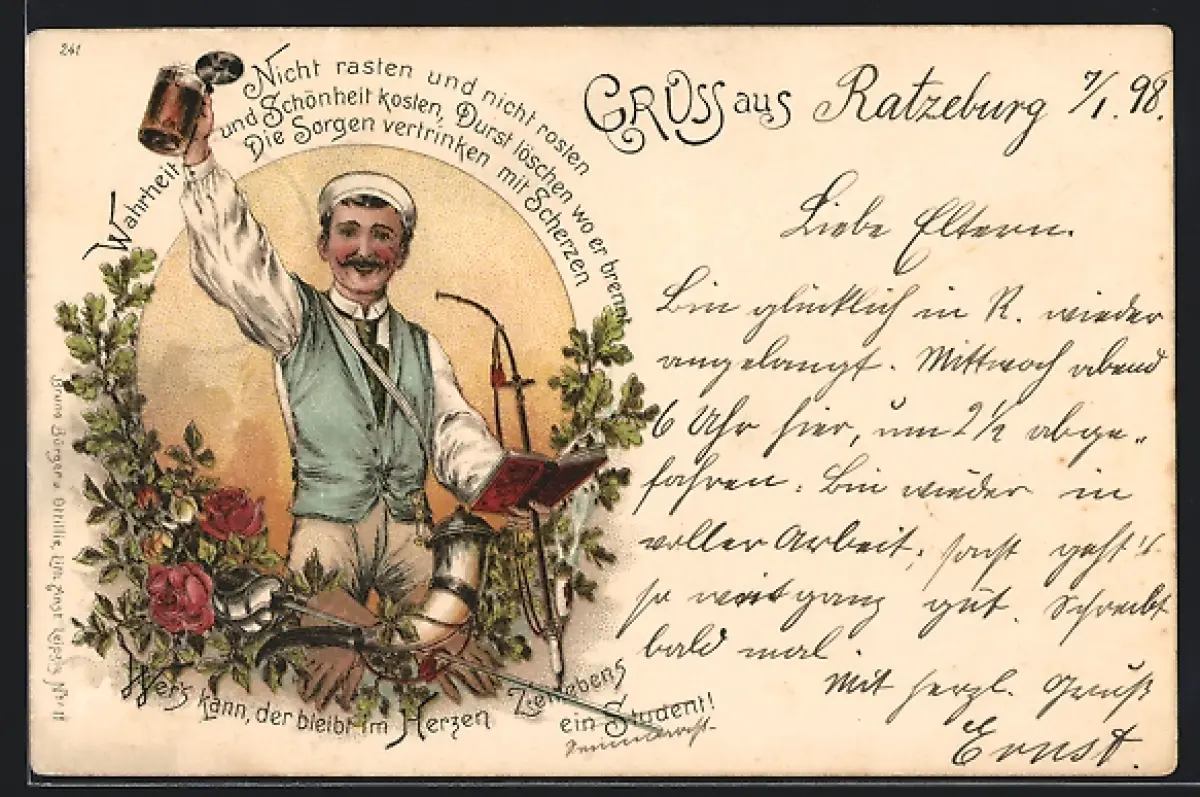 241
Nicht rasten und nicht rosten
Wahrheit und Schönheit kosten, Durst löschen wo er brennt
Die Sorgen vertrinken mit Scherzen
Wer's kann, der bleibt im Herzen Zeitlebens
ein Student!
Gruss aus Ratzeburg 7/1. 98.
Liebe Eltern.
Bin glücklich in R. wieder
angelangt. Mittwoch abend
6 Uhr hier, um 2 1/2 abge-
fahren. Bin wieder in
voller Arbeit, sonst geht's
so weit ganz gut. Schreibt
bald mal.
Mit herzl. Gruß
Ernst.
Bruno Bürger & Ottillie, Leipzig